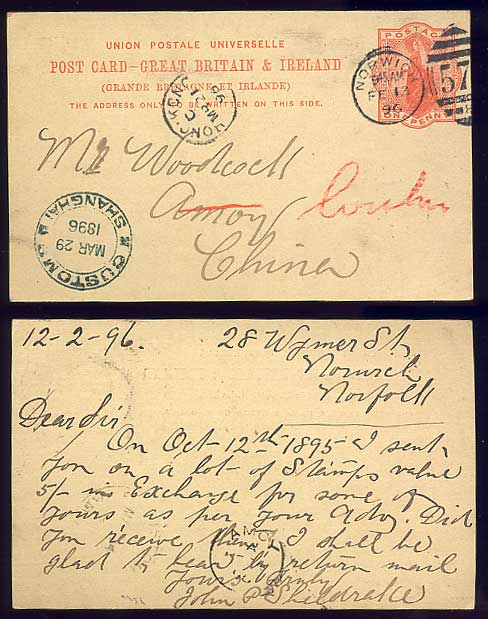 UNION POSTALE UNIVERSELLE
POST CARD—GREAT BRITAIN & IRELAND
(GRANDE BRETAGNE ET IRLANDE)
THE ADDRESS ONLY TO BE WRITTEN ON THIS SIDE.
POSTAGE
ONE PENNY
NORWICH
FE 12
96
57
HONG KONG
C
MR 23
96
Mr Woodcock
Amoy
China
CUSTOMS
MAR 29
1896
SHANGHAI
12-2-96.
28 Wymer St,
Norwich
Norfolk
Dear Sir
On Oct 12th 1895 I sent
you on a lot of Stamps value
5/- in Exchange for some of
yours as per your Adv. Did
you receive them, I shall be
glad to hear by return mail
Yours truly
John P Sheldrake
AMOY